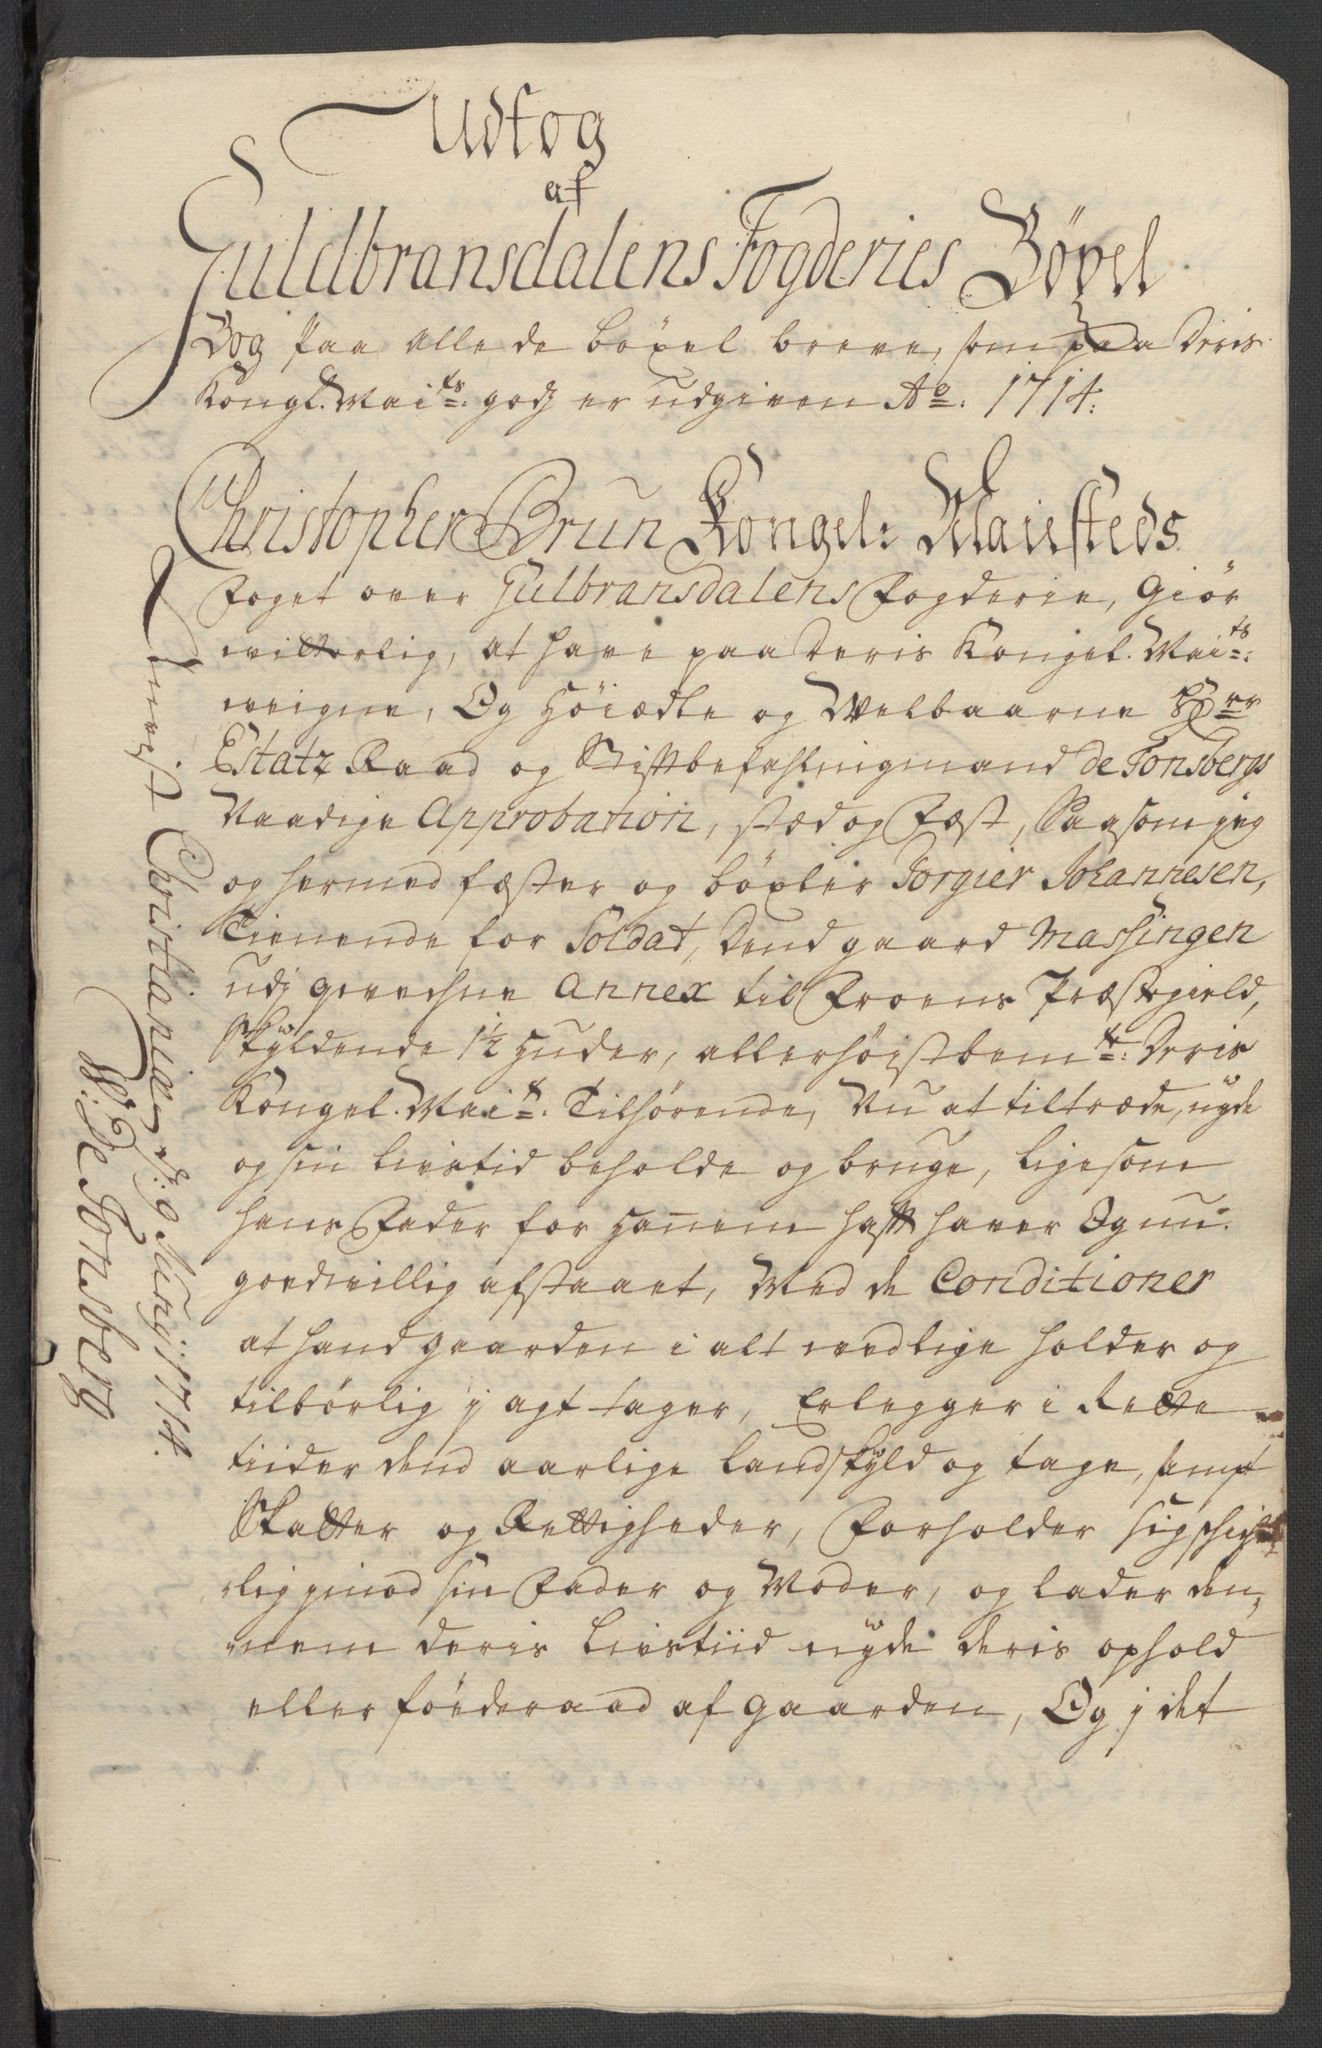 Udtog
af
Guldbransdalens Fogderies Böxel
Bog paa alle de böxel breve, som paa Deris
Kongl. Maits. godz er udgiven Ao. 1714:
Christopher Brun Kongel: Maiesteds
Foget over Gulbransdalens Fogderie, Giör
vitterlig, at have paa Deris Kongel. Maits:
veigne, Og Höiædle og Welbaarne Hr
EstatzRaad og Stiftbefahlingmand de Tonsbergs
Naadige Approbation, stæd og Fæst, Saasom jeg
og hermed fæster og böxler Torgier Johannesen,
Tienende for Soldat, Dend gaard Massingen
udj Annex til Froens Præstegield,
Skyldende 1½ Huder, allerhöistbemte: Deris
Kongel. Mait. Tilhörende, Nu at tiltræde, nyde
og sin Livstid beholde og bruge, ligesom
hans Fader for Hanem haft haver Og nu
goedvillig afstaaet, Med de Conditioner
at hand gaarden i alt vedlige holder og
tilbörlig j agt tager, Erlegger i Rette
tiider dend aarlige Landskyld og tage, samt
Skatter og Rettigheder, Forholder sig schick
lig imod sin Fader og Moder, og lader den,
nem deris Livstiid nyde deris ophold
eller föederaad af gaarden, Og j det
Christiania d: 9 Junij: 1714.
W: De Tonsberg